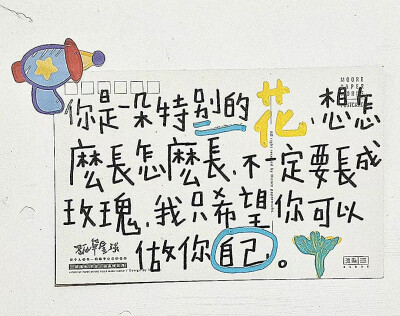 你是一朵特别的花,想怎
麽長怎麽長,不一定要長成
玫瑰,我只希望你可以
做你自己。